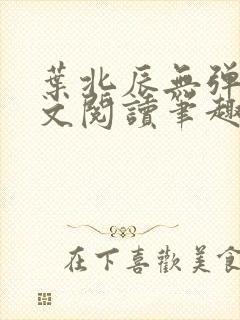 葉北辰無弹
文閱讀筆趣
在下喜歡美食